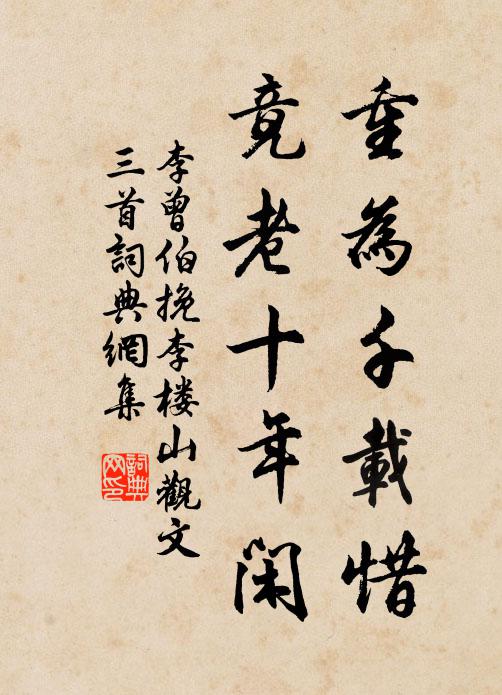 重為千載惜
竟老十年閑
李曾伯挽李楼山觀文
三首詞典網集
詞典
网印